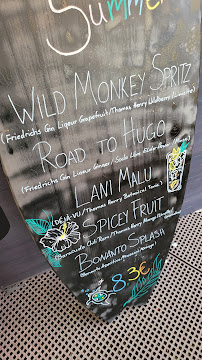 Summer
WILD MONKEY SPRITZ
(Friedrichs Gin Liqeur Grapefruit/Thomas Henry Wildberry
ROAD TO HUGO
(Friedrichs Gin Liqeur Soda
LANI MALU
(DEJA-VU/Thomas Henry Botanical Tonic)
SPICEY FRUIT
(Barracuda, Chili Rum/Thomas Henry Mango
BONANTO SPLASH
8.3€